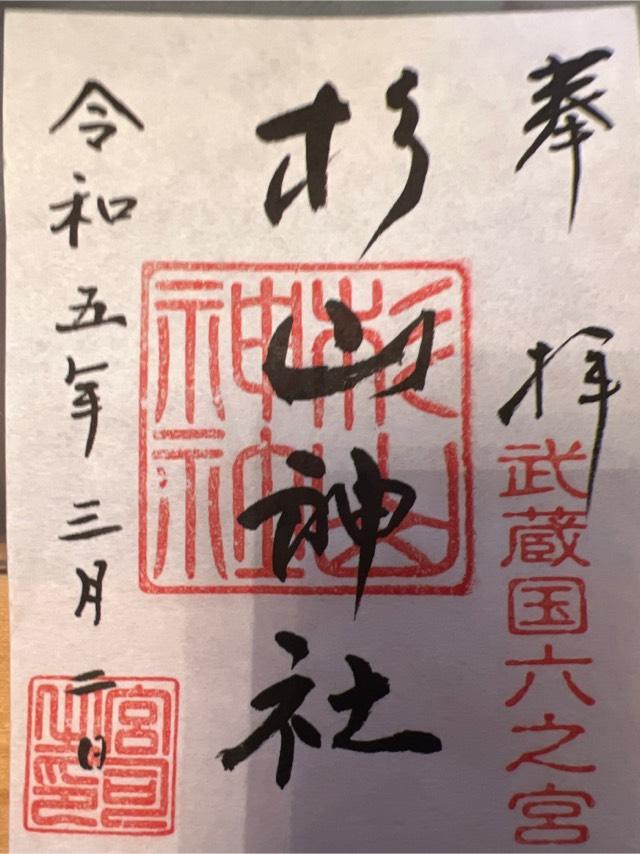 奉拝
武蔵国六之宮
杉山神社
杉山神社
令和五年三月二日
宮司之印